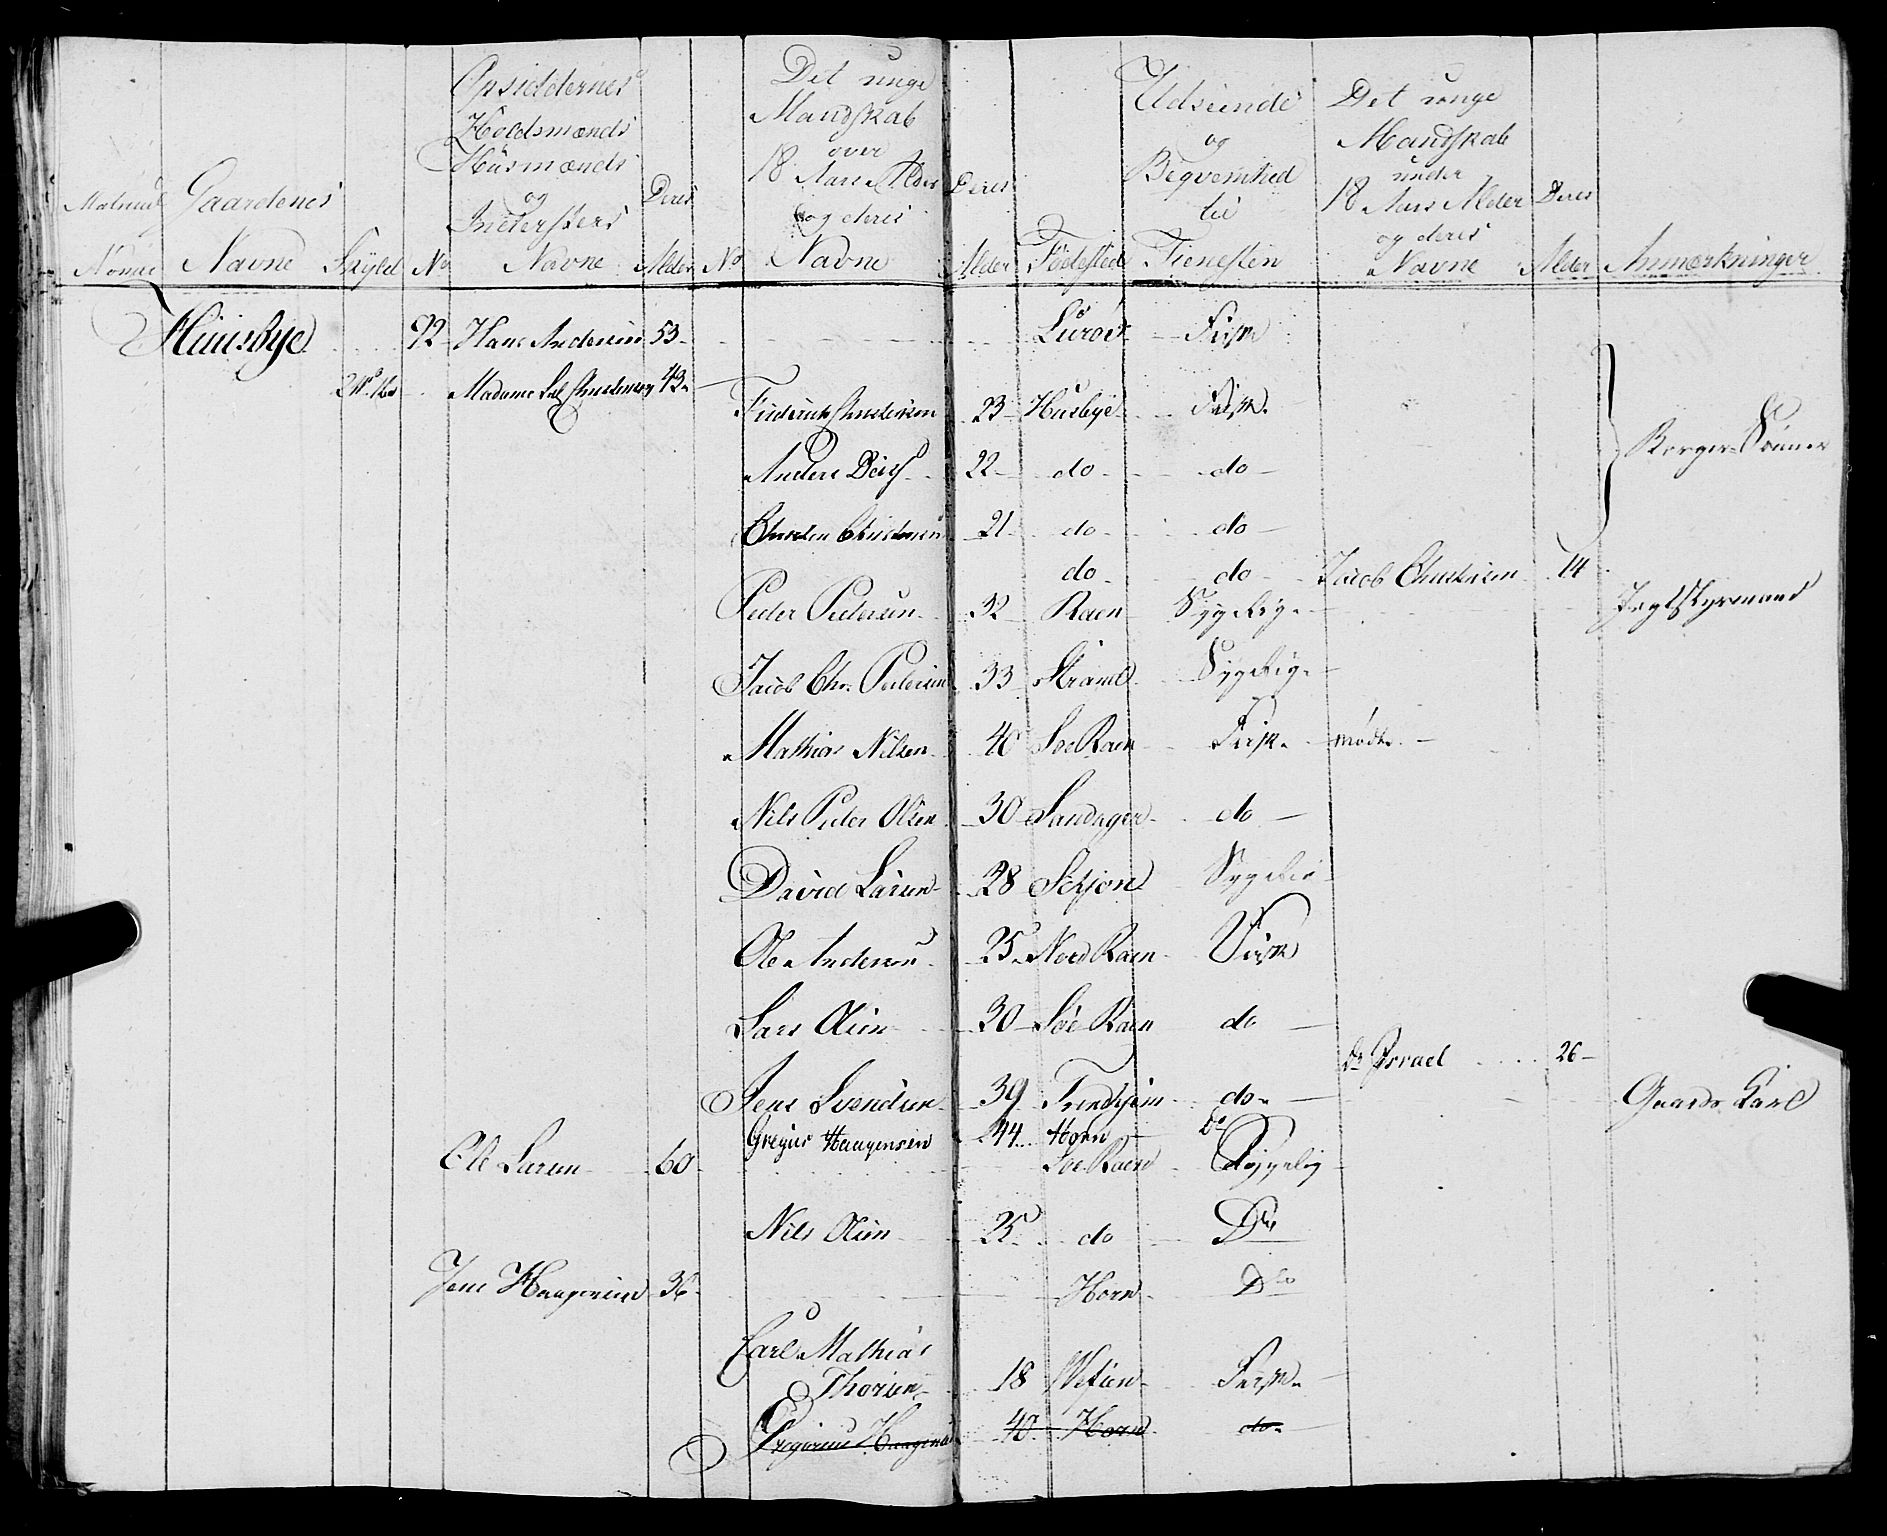 Matricul Nomre
Gaardenes Navne
Skyld
No
Opsiddernes Holdsmænds Huusmænds og Indersters Navne
Deres Alder
No
Det unge Mandskab over 18 Aars Alder og deres Navne
Deres Alder
Fødested
Udseende og Beqvemhed til Tienesten
Det unge Mandskab under 18 Aars Alder og deres Navne
Deres Alder
Anmærkninger
Huusbye 92 Hans Andersen 53 Lurøe Frisk
Madame 43
Friderich Christensen 23 Huusbye Frisk
Anders 22 do do
Borger Sønner
Christen Christensen 21 do do
do do Jacob Christensen 14
Peder Pedersen 32 Raen Sygelig Jegtstyrmand
Jacob Chr. Pedersen 33 Sygelig
Mathias Nilsen 40 Søe Raen Frisk mødte
Nils Peder Olsen 30 Sandager do
David Larsen 28 Setjon Sygelig
Ole Andersen 25 Nord Raen Frisk
Lars Olsen 30 Søe Raen do
26
Jens Svendsen 39 Trondhjem do Gaards Karl
Gregus Haagensen 44 Horn Do
Ole Larsen 60 Søe Raen Sygelig
Nils Olsen 25 do Do
Jens Haagensen 36 Horn Dto
Carl Mathias
Thorsen 18 Vefsen Frisk
Gregorius Haagensen 40 Horn do